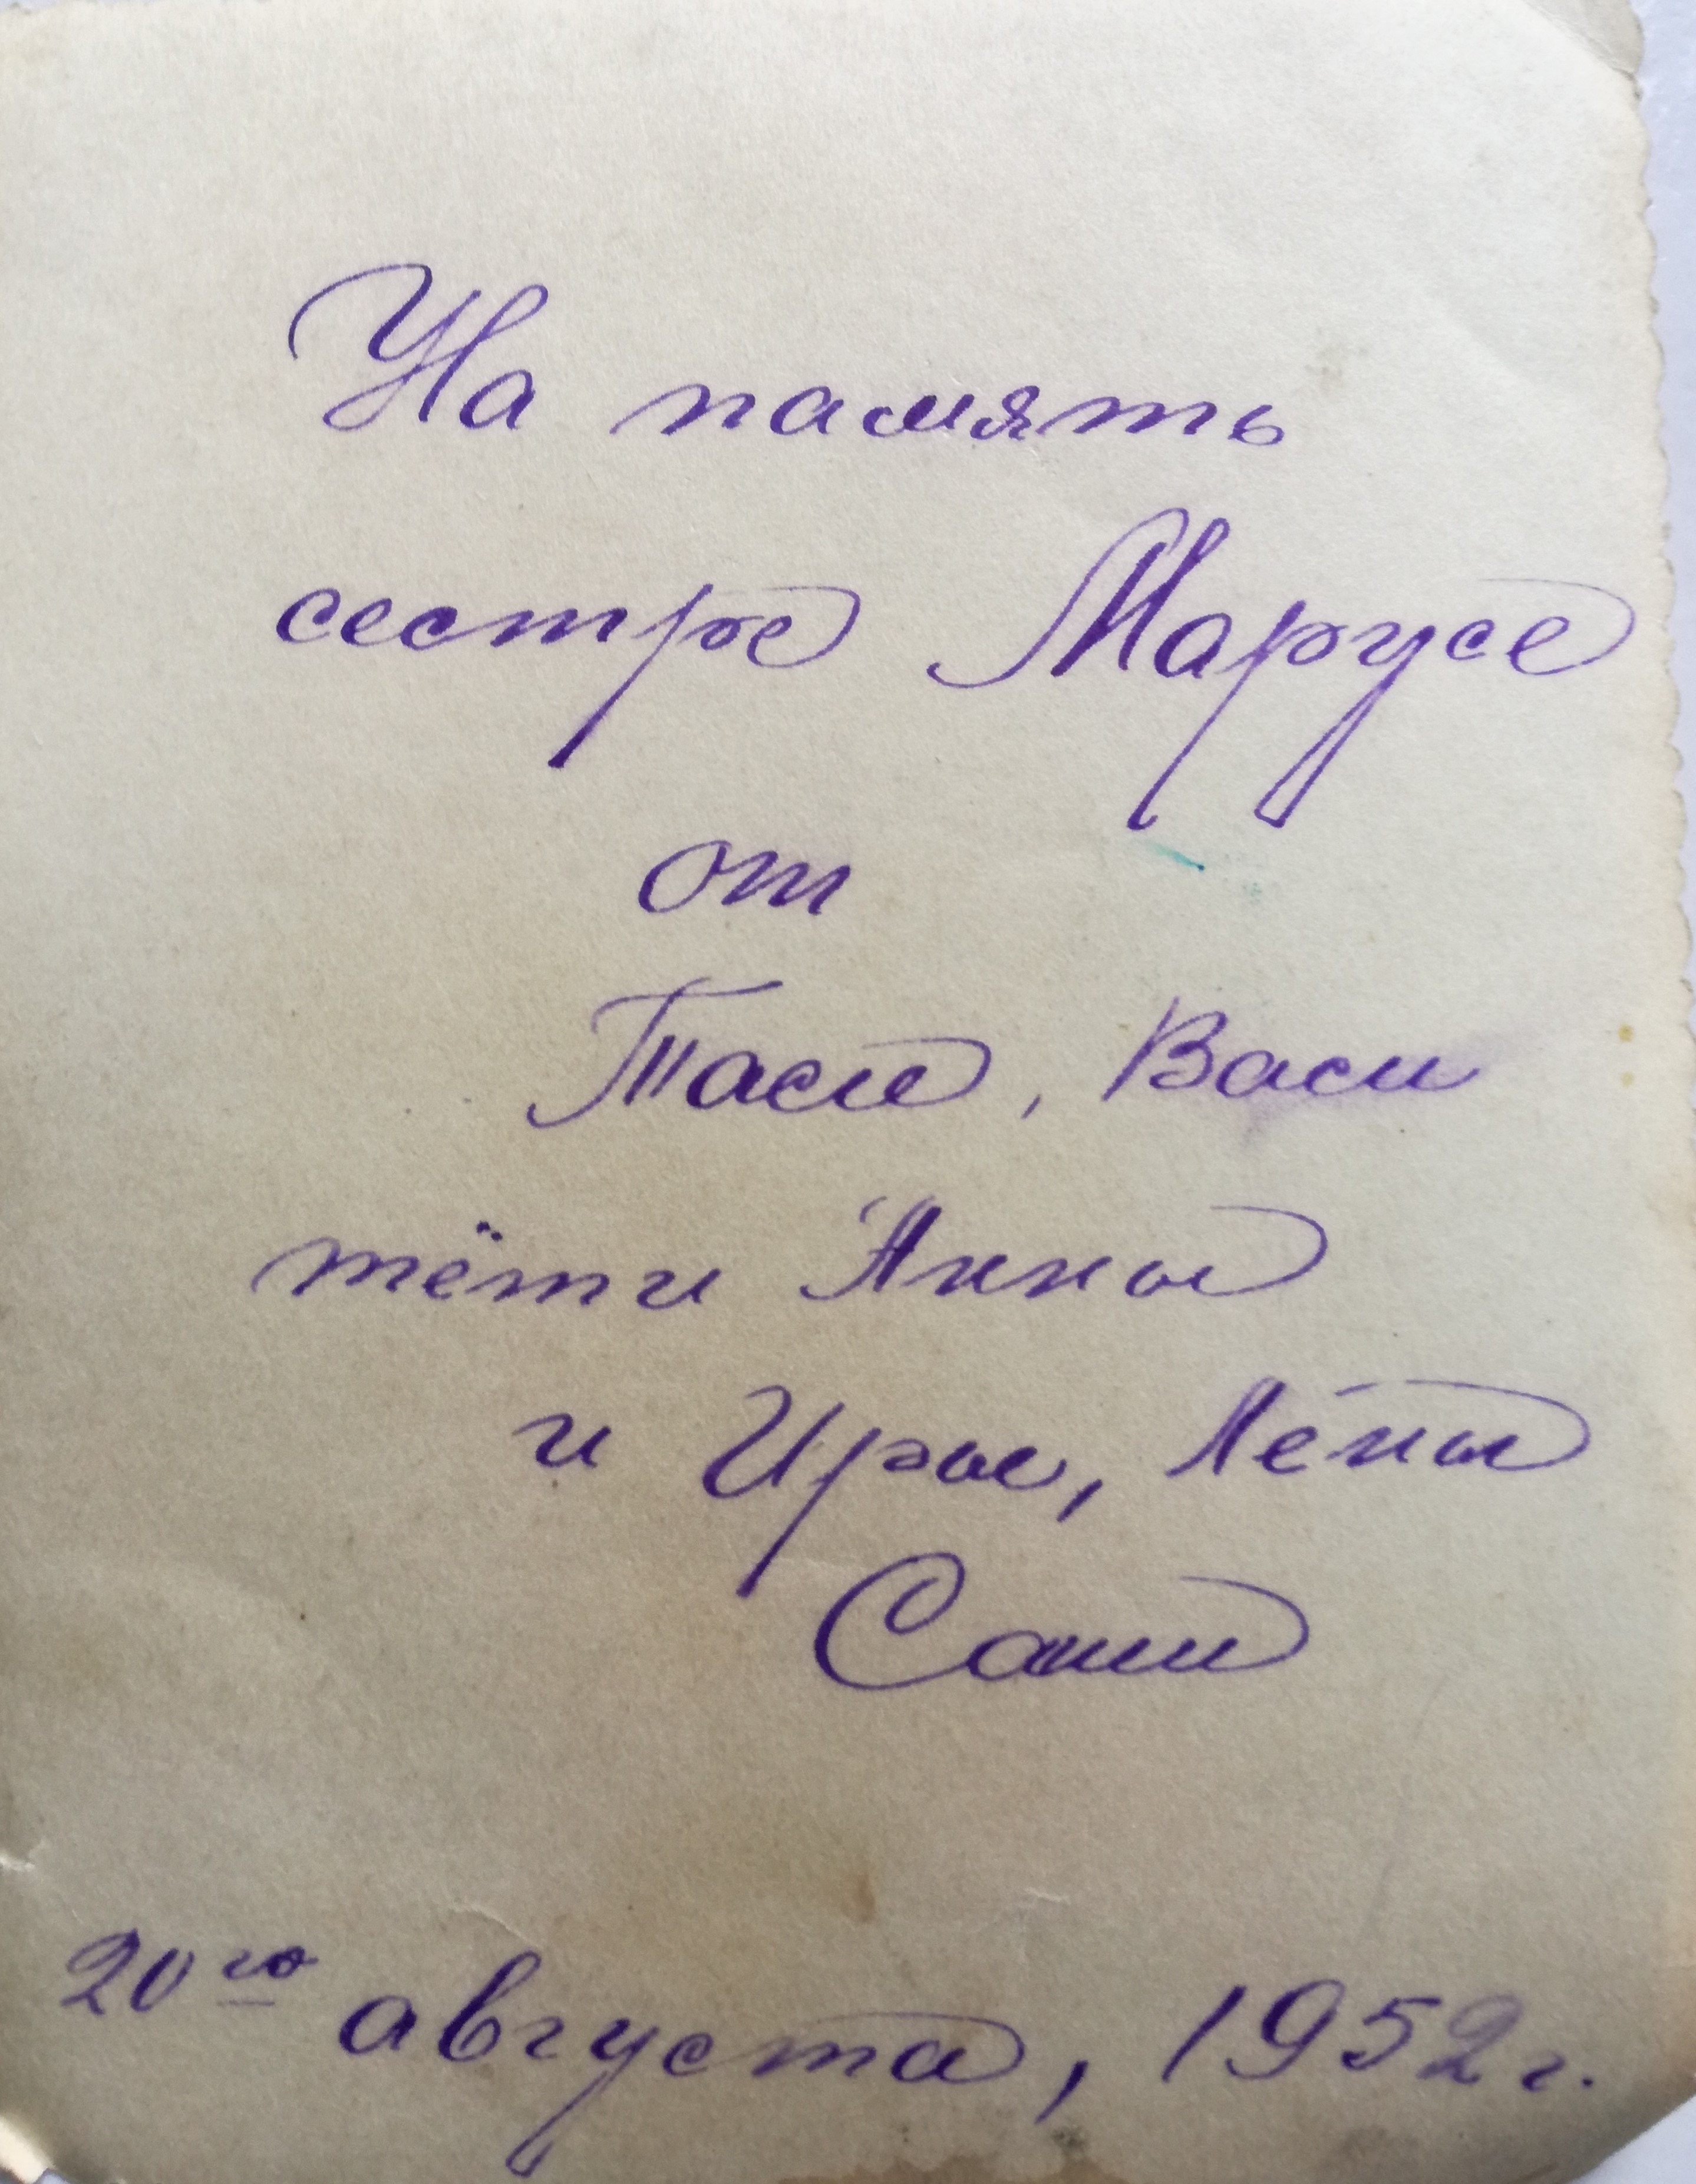 На память
сестре Марусе
от
Таси, Васи
тёти Анны
и Иры, Лёны
Саши
20го августа, 1952 г.